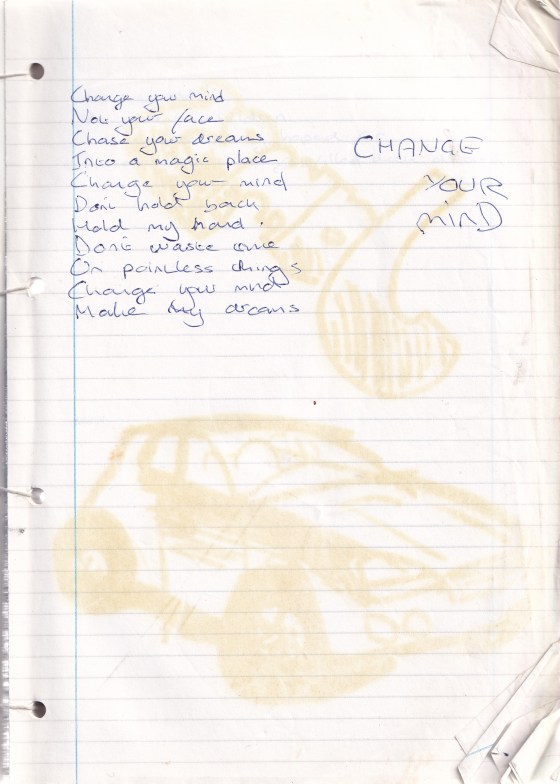 Change your mind
Not your face
Chase your dreams
Into a magic place
Change your mind
Don't hold back
Hold my hand.
Dont waste time
On painless things
Change your mind
Make my dreams
CHANGE
YOUR
MIND